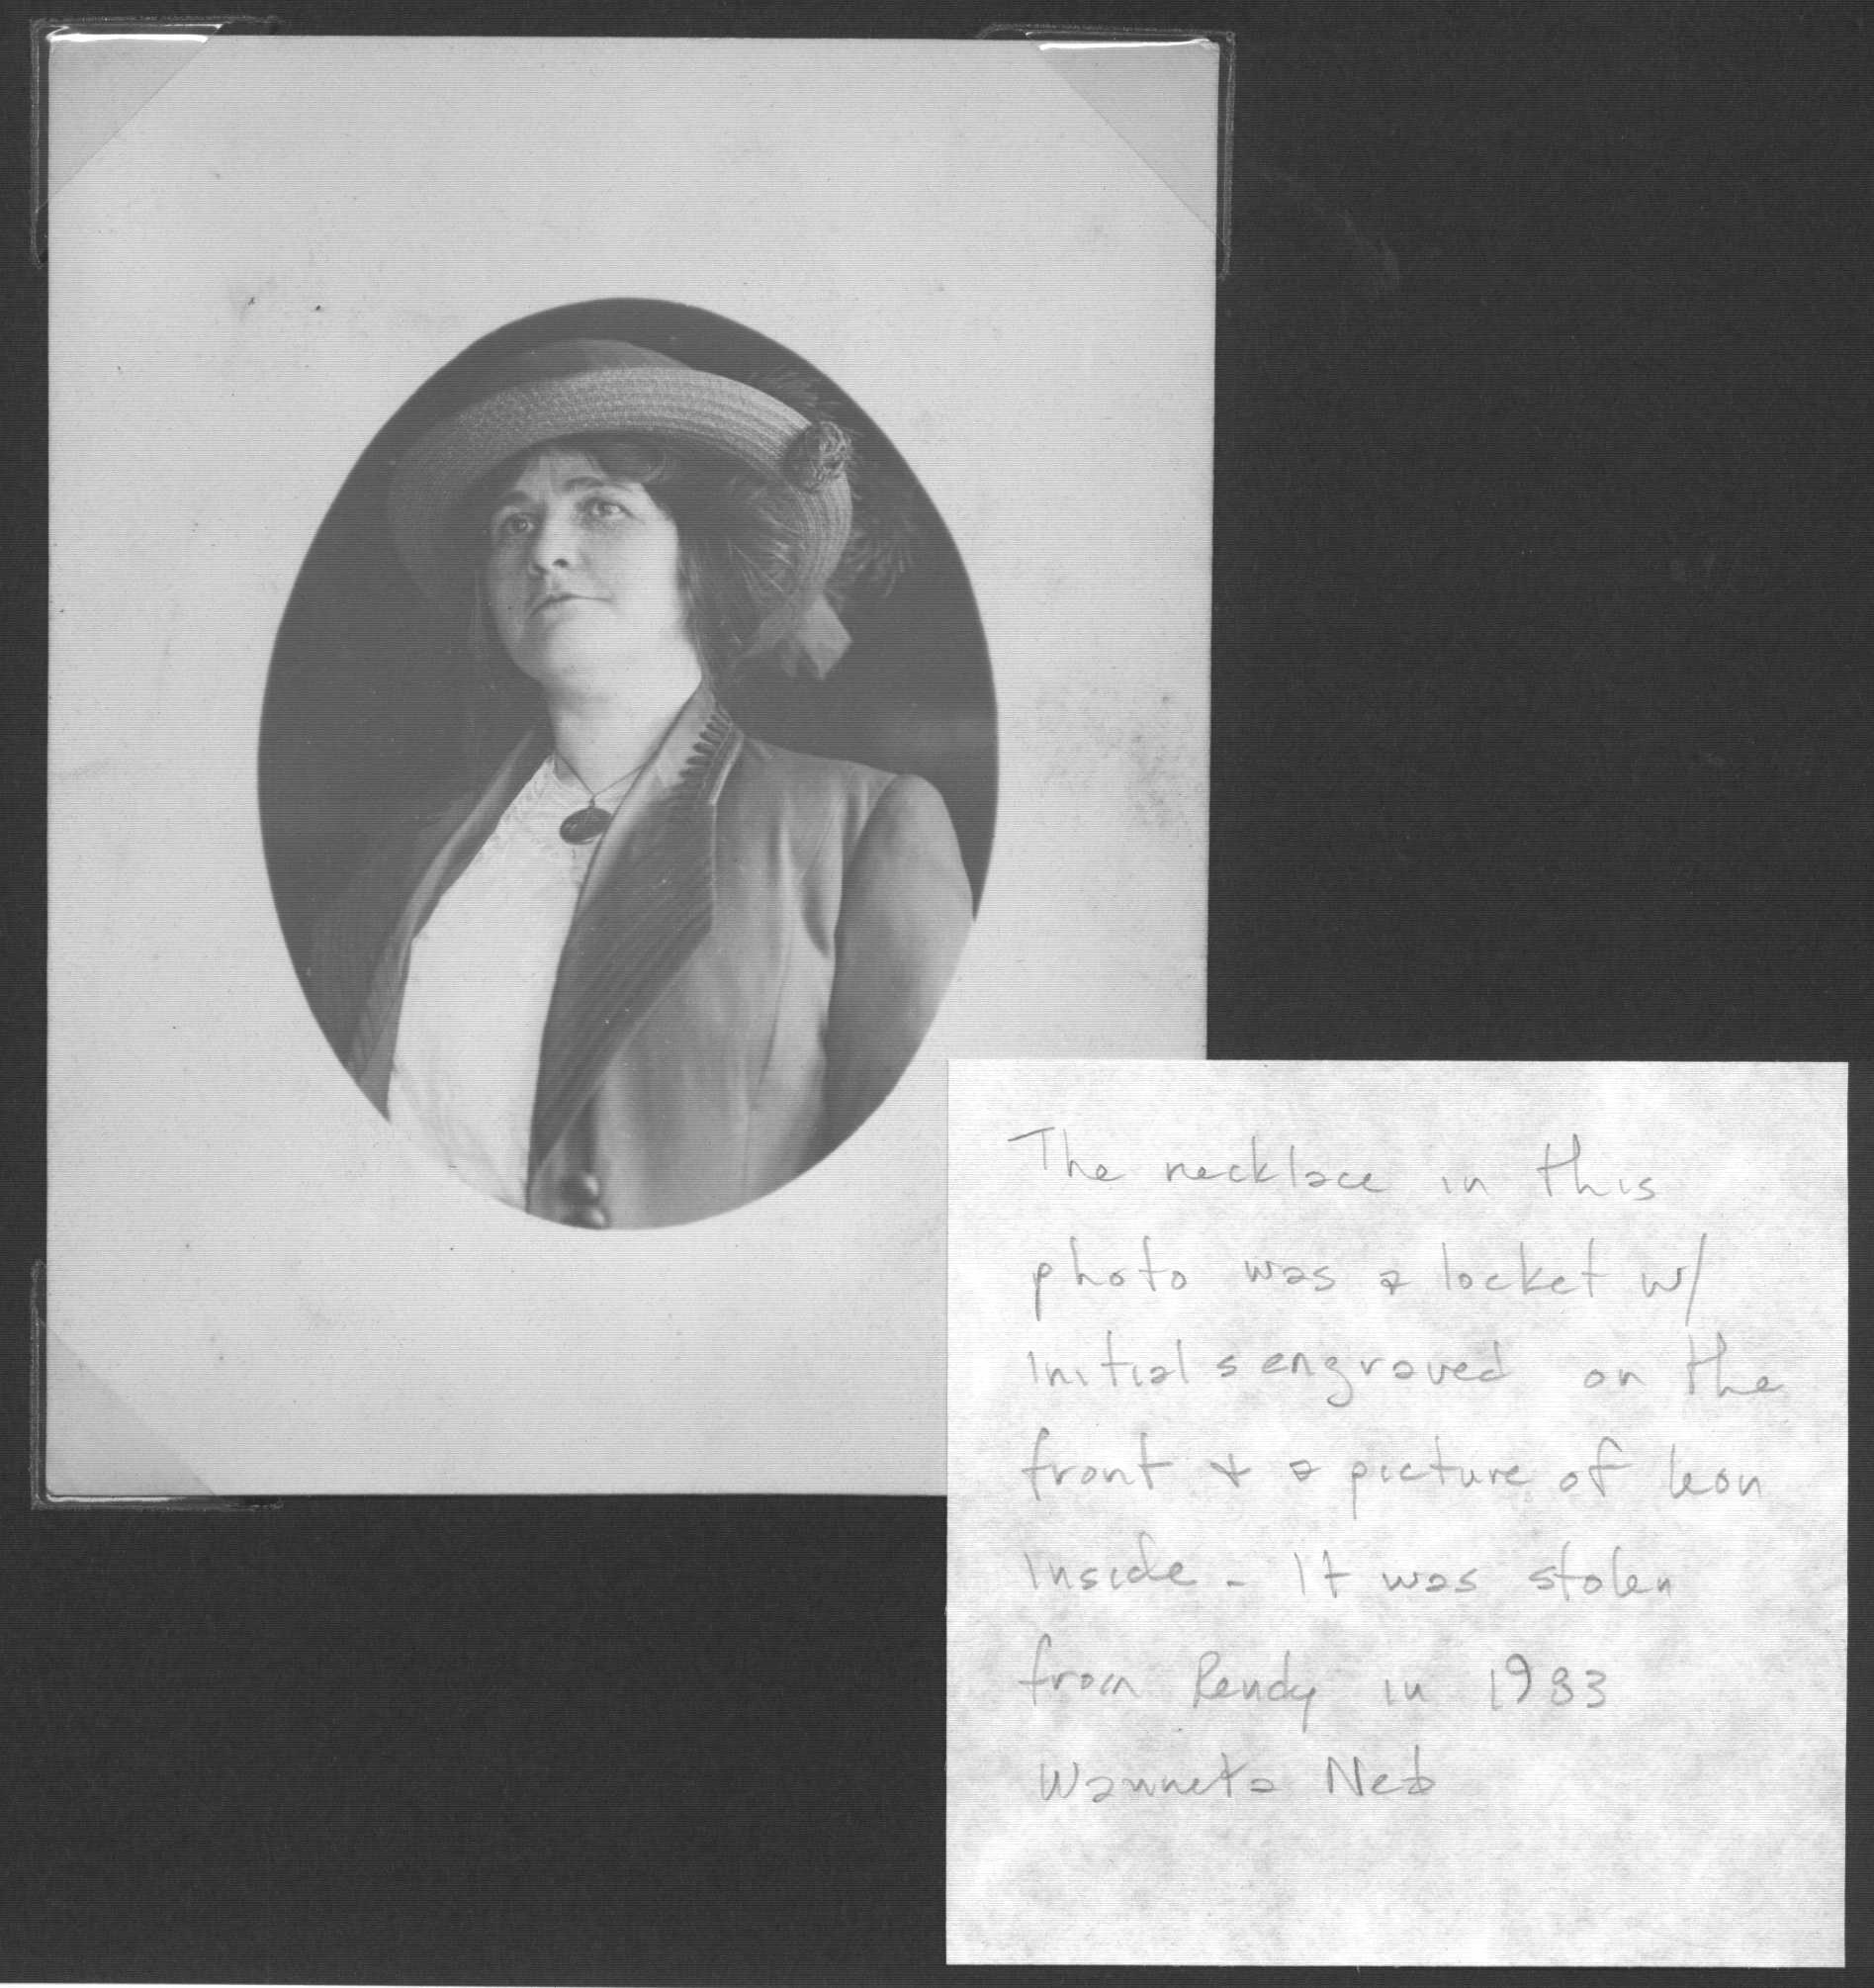 The necklace in this
photo was a locket w/
initials engraved on the
front + a picture of Leon
inside - It was stolen
from Rendy in 1983
Wanneta Neb